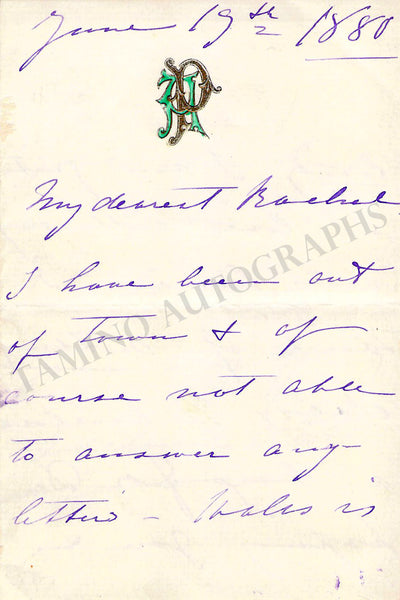 June 19th 1880
My dearest Rachel
I have been out
of Town & of
course not able
to answer any
letters - is
TAMINO AUTOGRAPHS